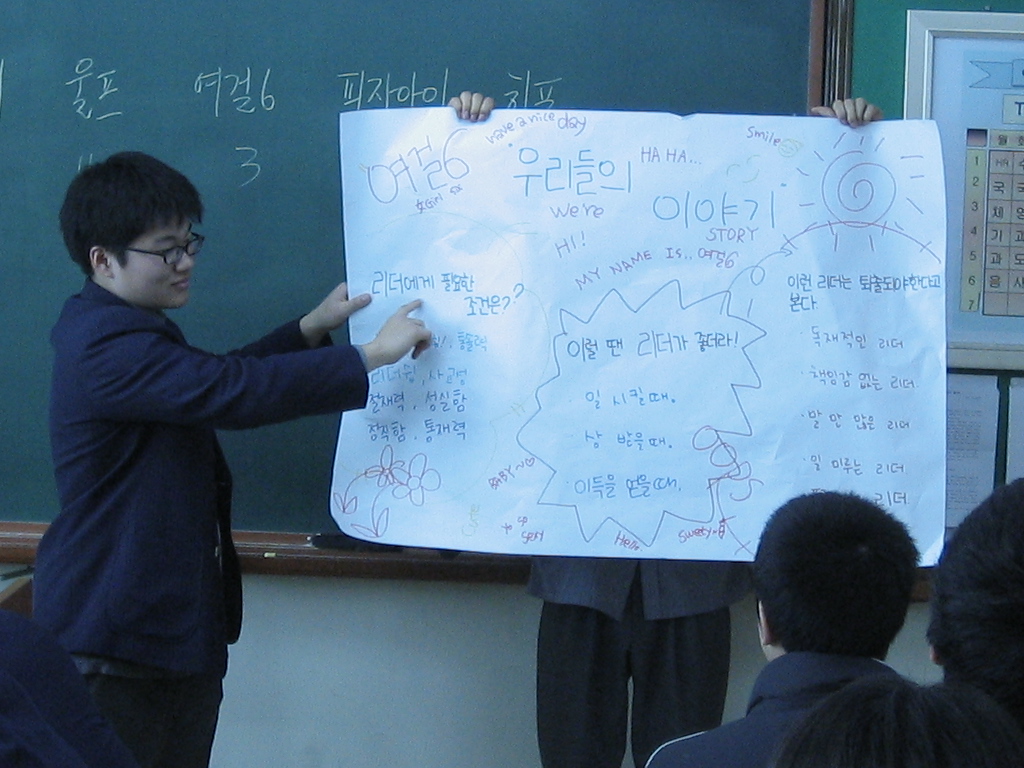 울프 여걸6 피자아이 치포
3
여걸6
Have a nice day
우리들의
HA HA...
Smile
were
이야기
STORY
HI!
MY NAME IS.. 여걸6
리더에게 필요한
조건은??
통솔력
리더쉽, 사교성
절재력, 성실함
정직함, 통재력
이럴 땐 리더가 좋더라!
· 일 시킬 때.
· 상 받을 때.
· 이득을 얻을 때.
이런 리더는 퇴출되야한다고
본다.
· 독재적인 리더
· 책임감 없는 리더
· 말 만 많은 리더
· 일 미루는 리더
리더
BABY~♡
Hello
1
2
3
4
5
6
7